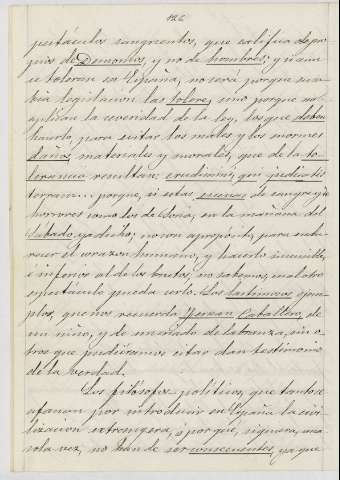 126
pectáculos sangrientos, que califica de pro-
pios de Demonios, y no de hombres; y si aun
se toleran en España, no será porque su sa-
bia legislacion las tolere, sino porque no
aplican la severidad de la ley, los que deben
hacerlo, para evitar los males y los enormes
daños, materiales y morales, que de la to-
lerancia resultan: erudimini, qui judicatis
terram... porque, si estas escenas de sangre y de
horrores como los de Soria, en la mañana del
Sábado, ya dicho; no son apropósito, para endu-
recer el corazon humano, y hacerlo insensible,
é inferior al de los brutos, no sabemos, cual otro
espectáculo pueda serlo. Los lastimosos ejem-
plos, que nos recuerda Fernan Caballero, de
un niño, y de un criado de labranza, sin o-
tros que pudiéramos citar dan testimonio
de la verdad.
Los filósofos políticos, que tanto se
afanan por introducir en España la civi-
lizacion extrangera, ¿por qué, siquiera, una
sola vez, no han de ser consecuentes, ya que